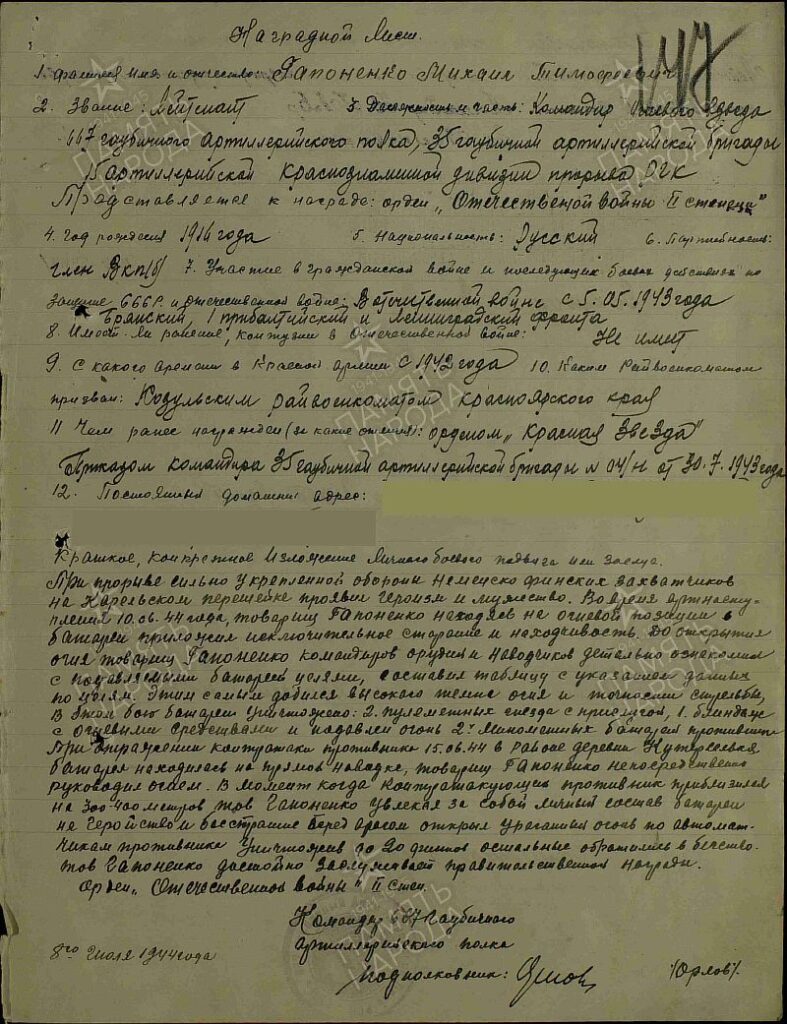 Наградной Лист.
147
1. Фамилия имя и отчество: Гапоненко Михаил Тимофеевич
2. Звание: Лейтенант 3. Должность и часть: Командир огневого взвода
667 гаубичного артиллерийского полка, 35 гаубичной артиллерийской бригады
15 артиллерийской краснознаменной дивизии прорыва РГК
Представляется к награде: орден „Отечественой войны II степени"
4. Год рождения 1916 года 5. Национальность: Русский 6. Партийность:
член Вкп(б) 7. Участие в гражданской войне и последующих боевых действиях по
защите СССР и отечественной войне: В отечественной войне с 5.05.1943 года
Брянский, 1 прибалтийский и Ленинградский фронта
8. Имеет ли ранения, контузии в Отечественной войне: Не имеет
9. С какого времени в Красной армии с 1942 года 10. Каким Райвоенкоматом
призван: Козульским райвоенкоматом красноярского края
11 Чем ранее награжден (за какие отличия): орденом „Красная Звезда"
Приказом командира 35 гаубичной артиллерийской бригады N 04/н от 30.7.1943 года
12. Постоянный домашний адрес:
Краткое, конкретное Изложение личного боевого подвига или заслуг.
При прорыве сильно укрепленной обороны немецко финских захватчиков
на Карельском перешейке проявил героизм и мужество. Во время артнасту-
пления 10.06.44 года, товарищ Гапоненко находясь на огневой позиции в
батареи приложил исключительное старание и находчивость. До открытия
огня товарищ Гапоненко командиров орудий и наводчиков детально ознакомил
с подавляемыми батареей целями, составил таблицу с указанием данных
по целям. Этим самым добился высокого темпа огня и точности стрельбы,
В этом бою батареи уничтожено: 2. пулеметных гнезда с прислугой, 1. блиндаж
с огневыми средствами и подавлен огонь 2х минометных батарей противника
При отражении контратаки противника 15.06.44 в районе деревни Кутерселькя
батарея находилась на прямой наводке, товарищ Гапоненко непосредственно
руководил огнем. В момент когда контратакующий противник приблизился
на 300 400 метров тов Гапоненко увлекая за собой личный состав батареи
на геройство и бесстрашие перед врагом открыл ураганный огонь по автомат-
чикам противника уничтожив до 20 финнов остальные обратились в бегство.
тов Гапоненко достойно заслуживает правительственной награды.
Орден „Отечественной войны" II степ.
Командир 667 Гаубичного
артиллерийского полка
8го Июля 1944 года
подполковник: /Орлов/.